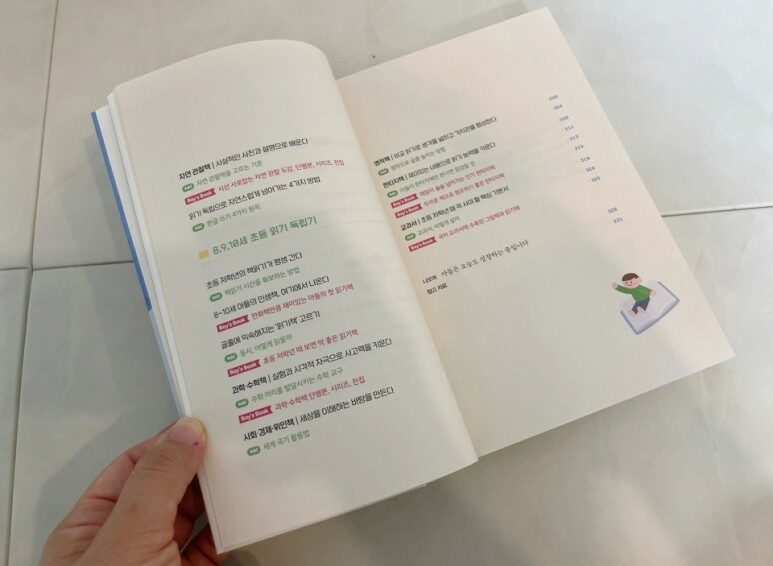 자연 관찰책 | 사실적인 사진과 설명으로 배운다
Add 자연 관찰책을 고르는 기준
Boy's Book 시선 사로잡는 자연 관찰 도감, 단행본, 시리즈, 전집
읽기 독립으로 자연스럽게 넘어가는 4가지 방법
Add 한글 쓰기 4가지 원칙
8, 9, 10세 초등 읽기 독립기
초등 저학년의 책읽기가 평생 간다
Add 책읽기 시간을 확보하는 방법
8~10세 아들의 인생책, 여기에서 나온다
Boy's Book 만화책만큼 재미있는 아들의 첫 읽기책
글줄에 익숙해지는 '읽기책' 고르기
Add 동시, 어떻게 읽을까
Boy's Book 초등 저학년 때 보면 딱 좋은 읽기책
과학·수학책 | 실험과 시각적 자극으로 사고력을 키운다
Add 수학 머리를 발달시키는 수학 교구
Boy's Book 과학·수학책 단행본, 시리즈, 전집
사회·경제·위인책 | 세상을 이해하는 바탕을 만든다
Add 세계 국기 활용법
명작책 | 비교 읽기로 생각을 넓히고 가치관을 형성한다
Add 명작으로 글을 늘리는 방법
판타지책 | 재미있는 내용으로 읽기 능력을 키운다
Add 아들이 판타지책만 본다면
Boy's Book 책장이 술술 넘어가는 인기 판타지책
Boy's Book 두꺼운 책으로 점프하기 좋은 판타지책
교과서 | 초등 저학년 때 꼭 사야 할 핵심 기본서
Add 교과서, 어떻게 살까
Boy's Book 국어 교과서에 수록된 그림책과 읽기책
나오며 아들은 오늘도 성장하는 중입니다
참고 자료
298
304
306
311
313
315
319
324
325
328
331